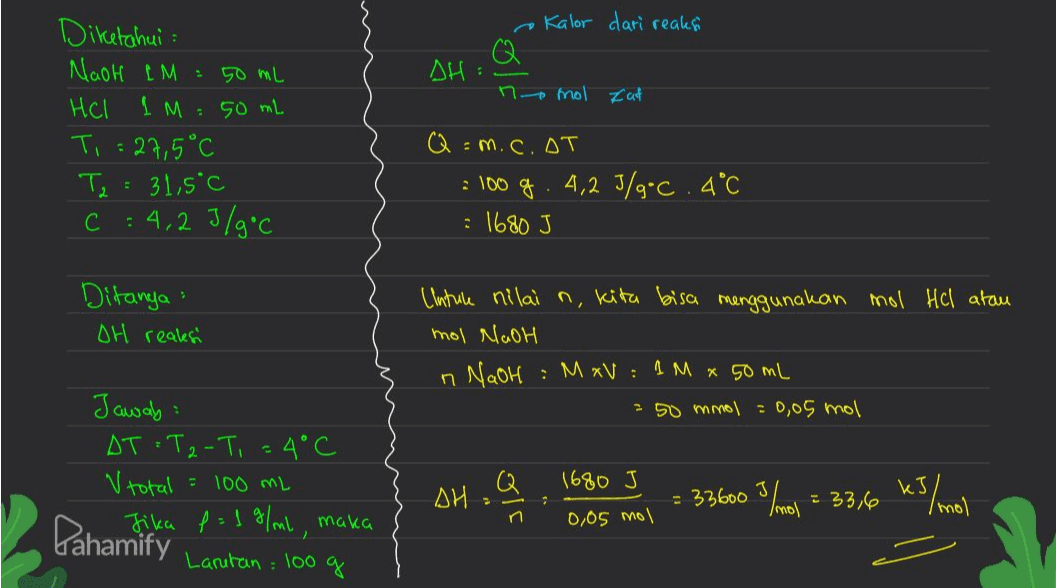 Diketahui :
NaOH 1 M = 50 mL
HCl 1 M = 50 mL
T₁ = 27,5°C
T₂ = 31,5°C
C = 4,2 J/g°C
Ditanya :
ΔH reaksi
Jawab :
ΔT = T₂ - T₁ = 4°C
V total = 100 mL
Jika ρ = 1 g/mL, maka
Larutan = 100 g
Pahamify
→ Kalor dari reaksi
ΔH = Q/n
→ mol zat
Q = m. C. ΔT
= 100 g . 4,2 J/g°C . 4°C
= 1680 J
Untuk nilai n, kita bisa menggunakan mol HCl atau
mol NaOH
n NaOH = M x V = 1 M x 50 mL
= 50 mmol = 0,05 mol
ΔH = Q/n = 1680 J / 0,05 mol = 33600 J/mol = 33,6 kJ/mol